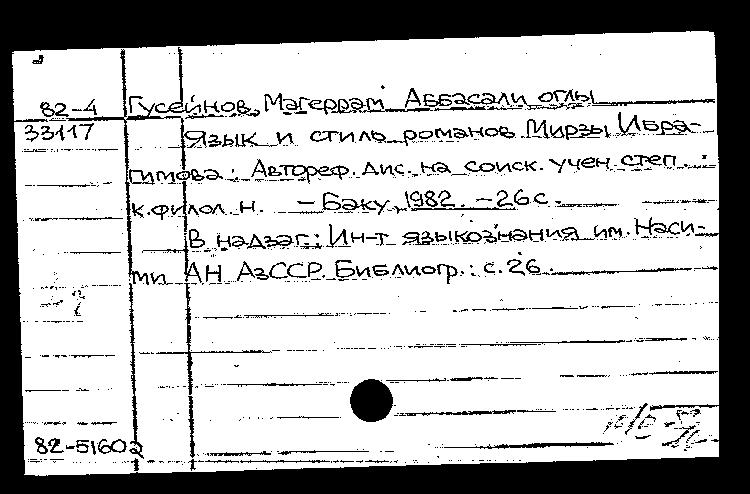 82-4 Гусейнов, Магеррам Аббасали оглы
33117 Язык и стиль романов Мирзы Ибра-
гимова: Автореф. дис. на соиск. учен степ.
к. филол. н. – Баку, 1982. – 26 с.
В надзаг.: Ин-т языкознания им. Наси-
ми АН АзССР. Библиогр.: с. 26.
82-51602